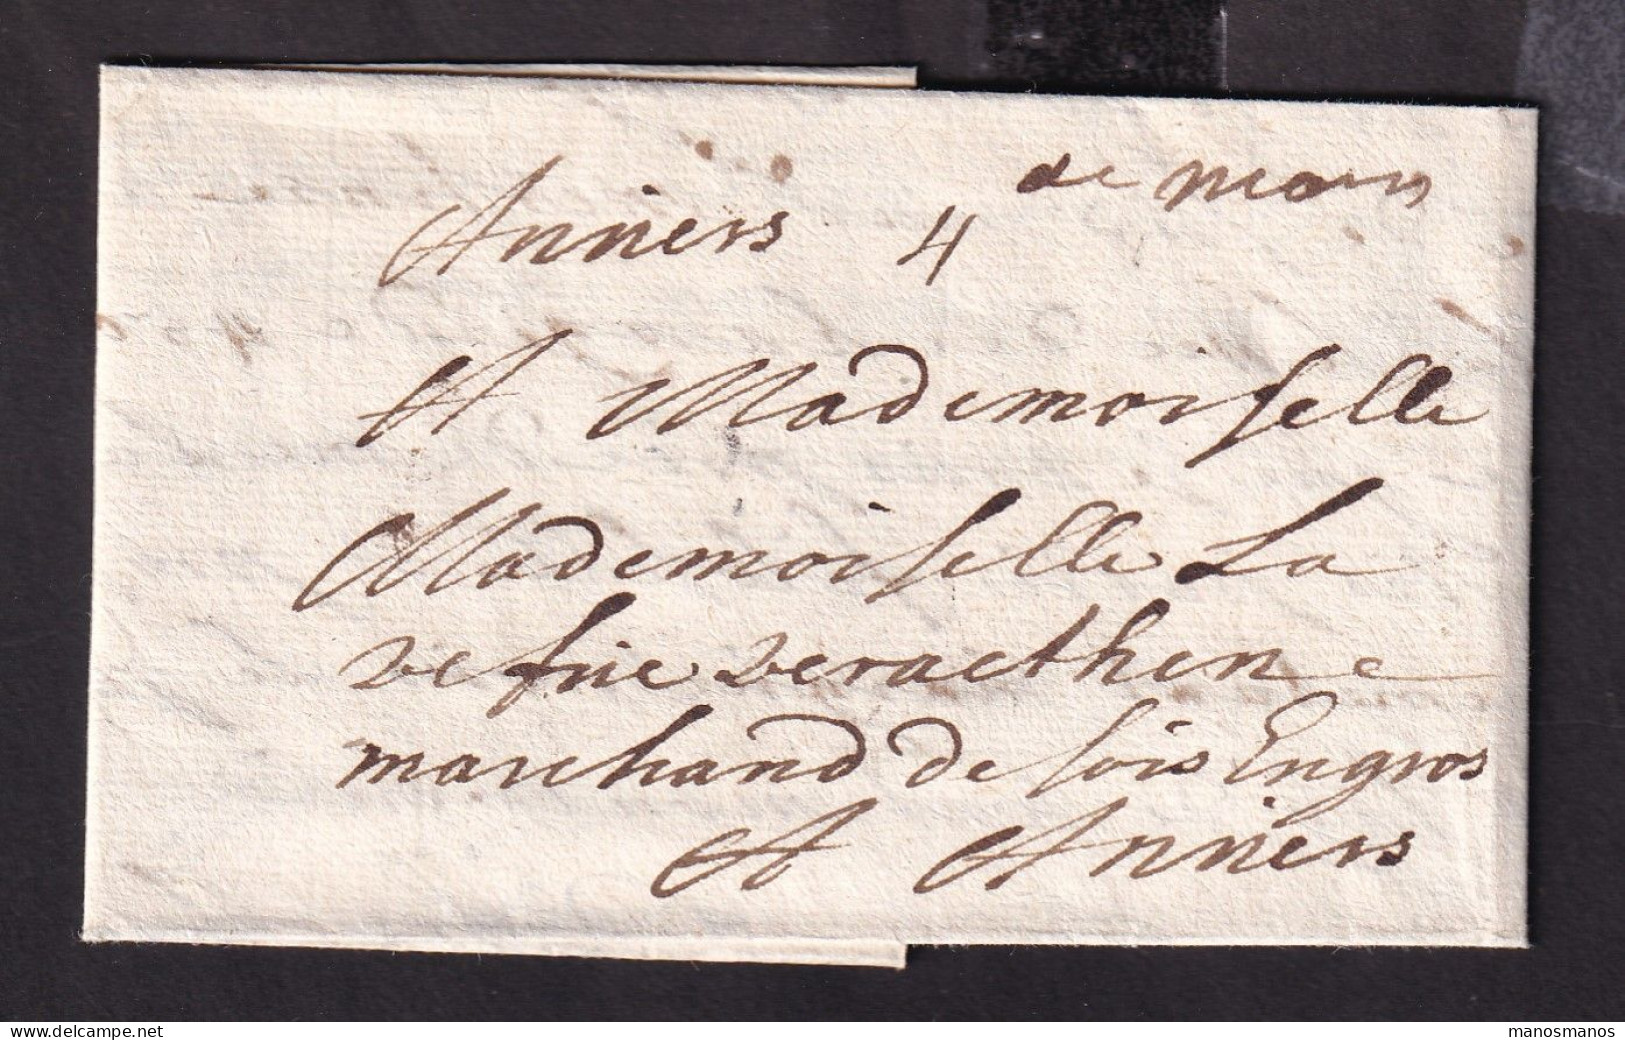 de mons
Anvers 4
A Mademoiselle
Mademoiselle La
vefue veraethen
marchand de sois Engros
A Anvers
www.delcampe.net
manosmanos